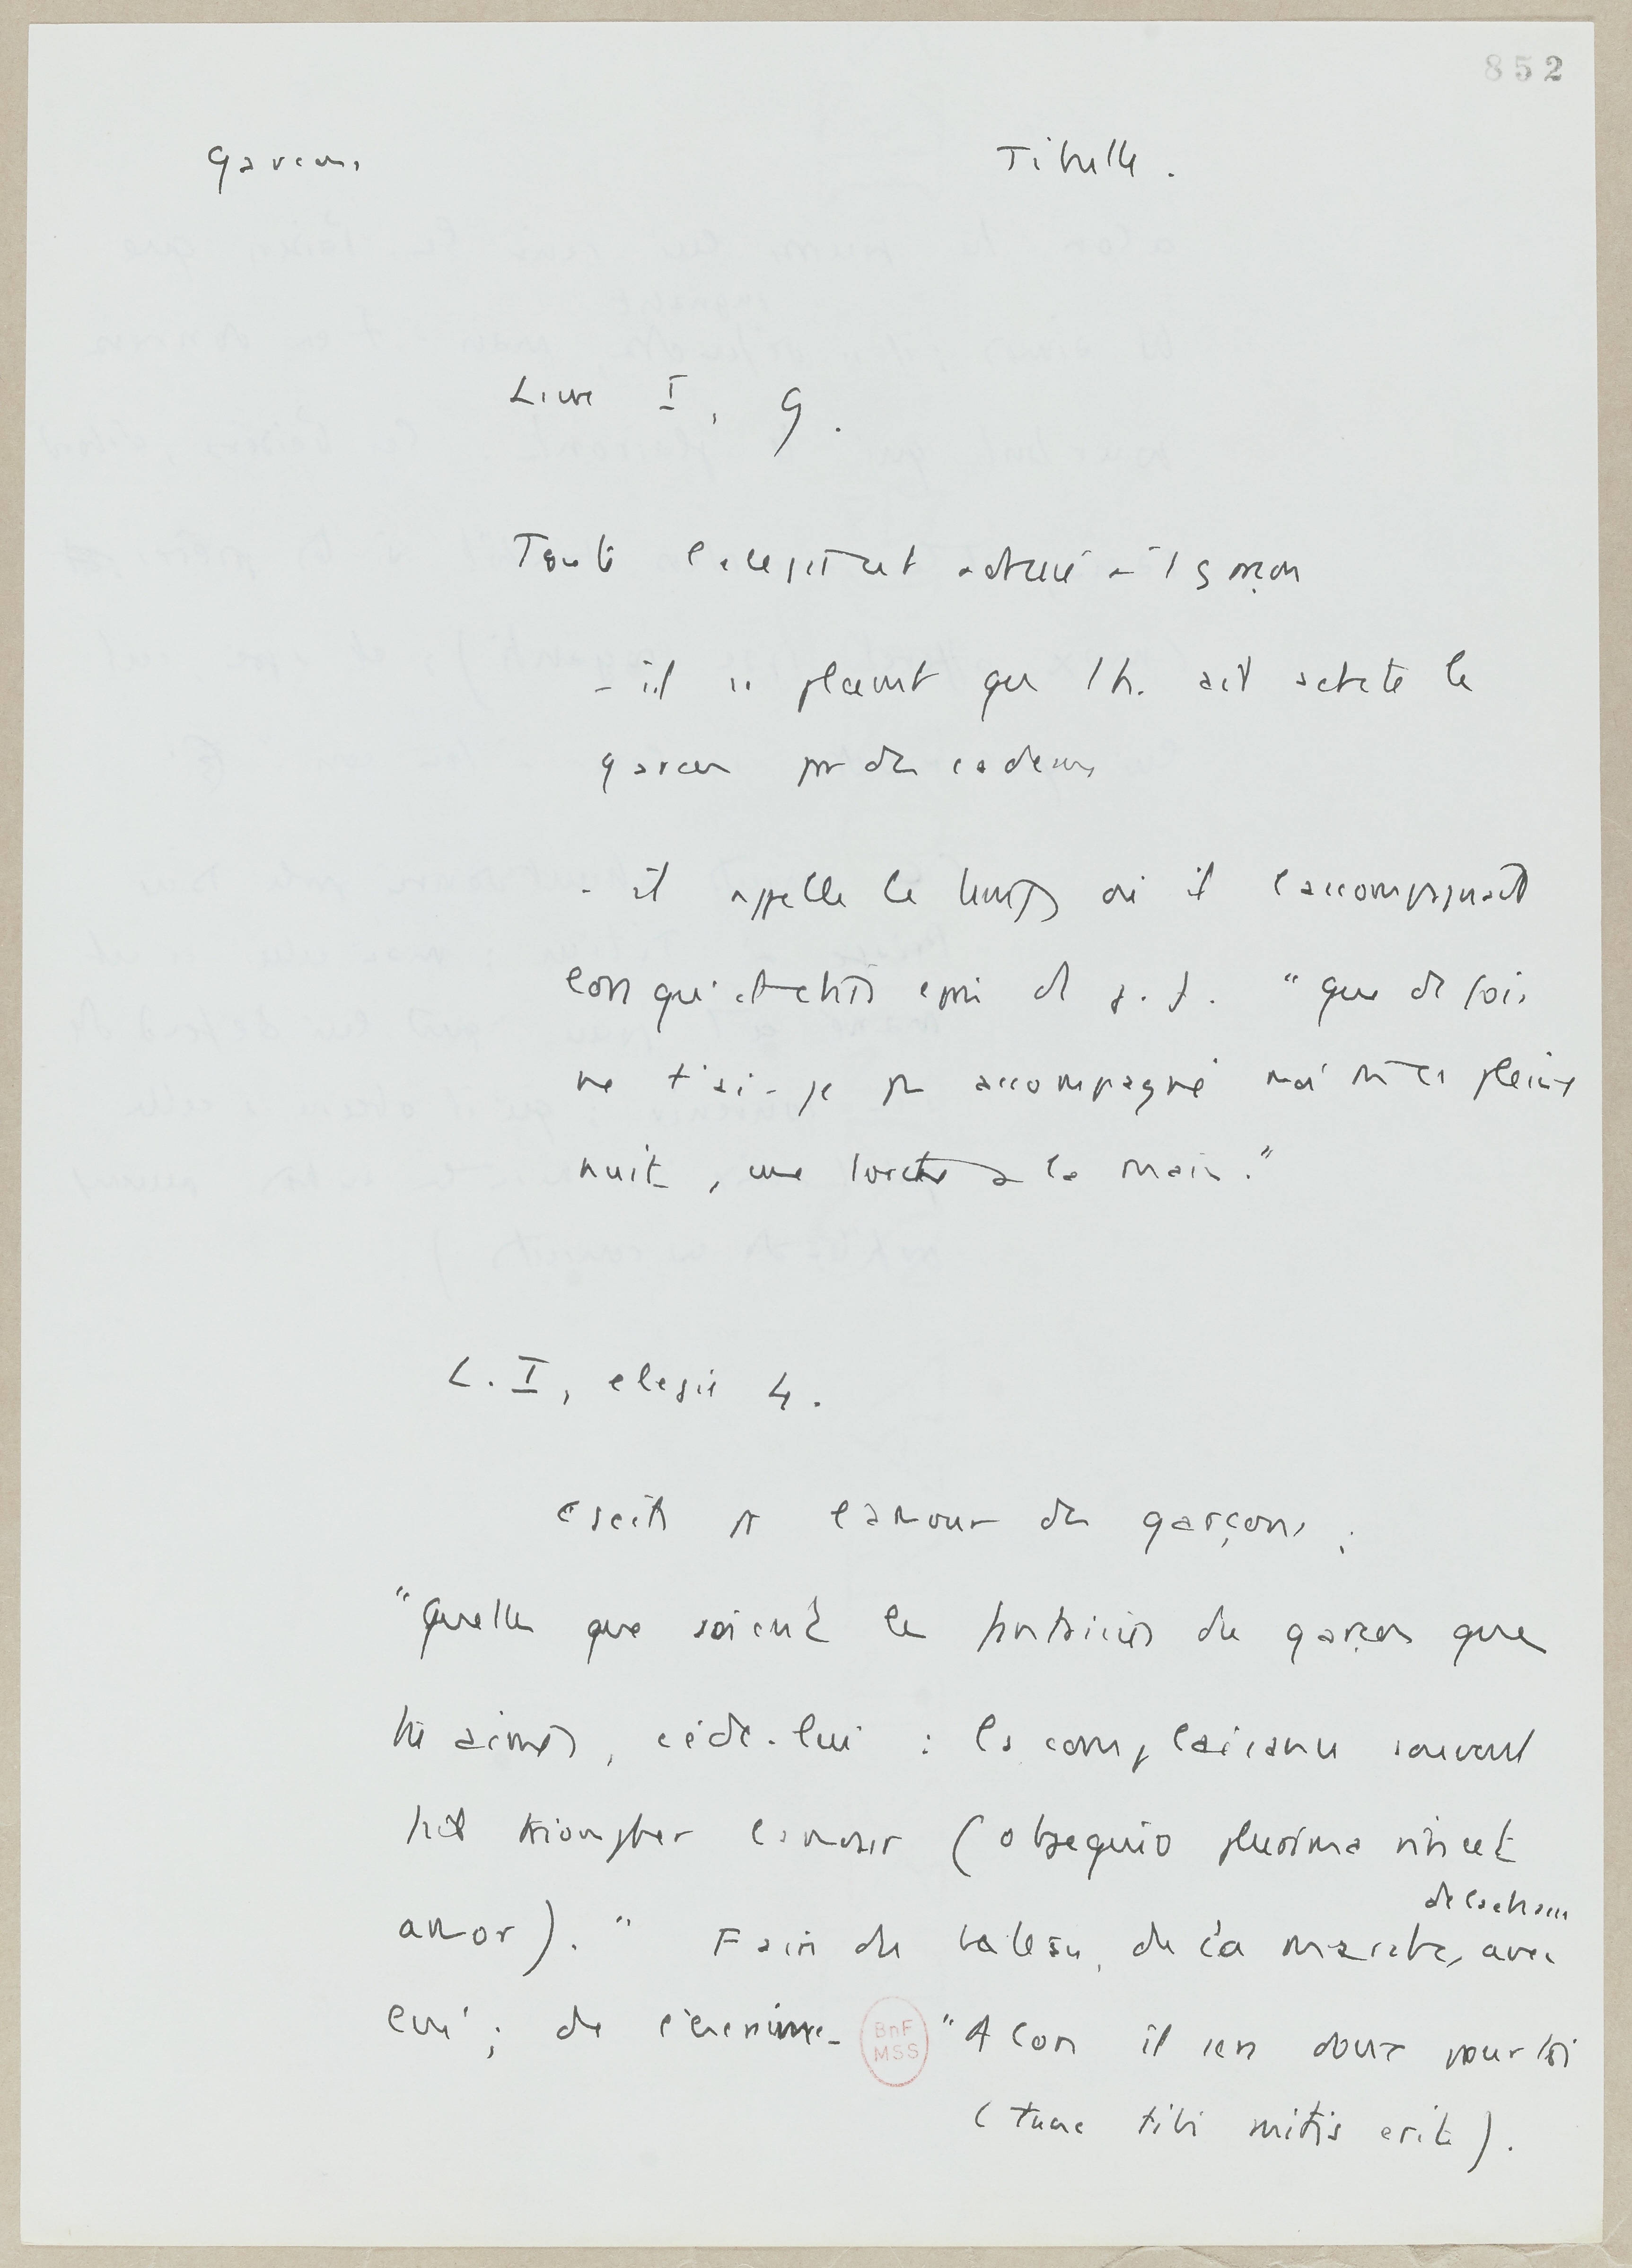 852
Garçons Tibulle.
Livre I, 9.
Toute l'elegie est adressée à 1 garçon
- il se plaint qu 1 h. ait acheté le
garçon par des cadeaux
- il rappelle le temps où il l'accompagnait
"que de fois
ne t'ai-je pas accompagné moi même en pleine
nuit, une torche à la main."
L. I, elegie 4.
écrit sr l'amour des garçons :
"Quelles que soient les fantaisies du garçon que
tu aimes, cède-lui : la complaisance souvent
fait triompher l'amour (obsequio plurima vincet
de la chasse
amor)." Faire du bateau, de la marche, avec
lui ; de l'escrime
BnF
MSS
"Alors il sera doux pour toi
(tunc tibi mitis erit).